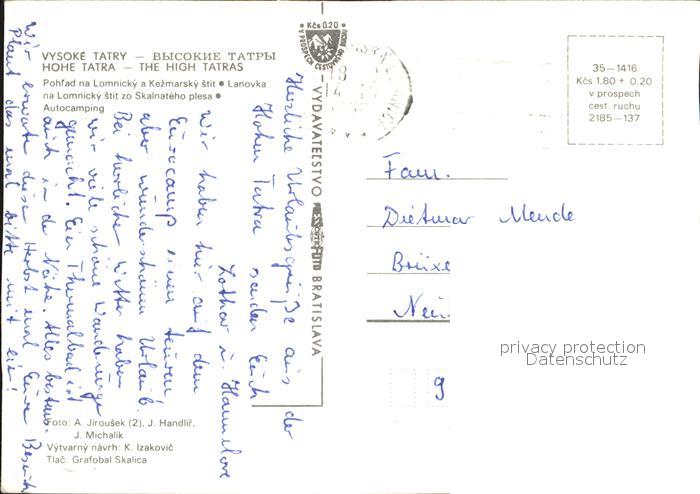 Kčs 0.20
V PROSPECH CESTOVNÉHO RUCHU
VYSOKÉ TATRY – ВЫСОКИЕ ТАТРЫ
HOHE TATRA – THE HIGH TATRAS
Pohľad na Lomnický a Kežmarský štít • Lanovka
na Lomnický štít zo Skalnatého plesa •
Autocamping
Herzliche Urlaubsgrüße aus der
Hohen Tatra senden Euch
Lothar u. Hannelore
Wir haben hier auf dem
Eurocamp einen teuren,
aber wunderschönen Urlaub.
Bei herrlichem Wetter haben
wir viele schöne Wanderungen
gemacht. Ein Thermalbad ist
auch in der Nähe. Alles bestens.
Wir erwarten diesen Herbst mal Euren Besuch
Plant das mal bitte mit ein!
VYDAVATEĽSTVO
FOTO BRATISLAVA
35—1416
Kčs 1.80 + 0.20
v prospech
cest. ruchu
2185—137
Fam.
Dietmar Mende
Brüxe
Neu
9
privacy protection
Datenschutz
Foto: A. Jiroušek (2), J. Handlíř,
J. Michalík
Výtvarný návrh: K. Izakovič
Tlač: Grafobal Skalica